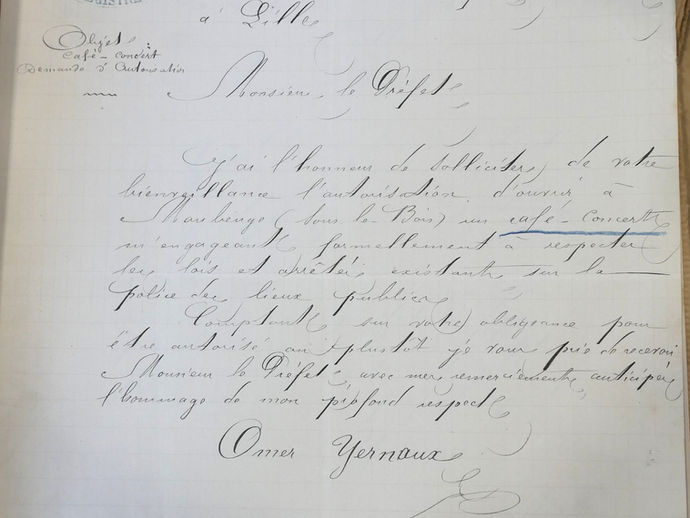 à Lille
Objet :
Café-concert
Demande d'Autorisation
Monsieur le Préfet
J'ai l'honneur de solliciter, de votre
bienveillance l'autorisation d'ouvrir à
Maubeuge (sous-le-Bois) un café-concert
m'engageant formellement à respecter
les lois et arrêtés existant sur la
police des lieux publics
Comptant sur votre obligeance pour
être autorisé au plustôt je vous prie de recevoir
Monsieur le Préfet, avec mes remerciements anticipés
l'hommage de mon profond respect
Omer Yernaux